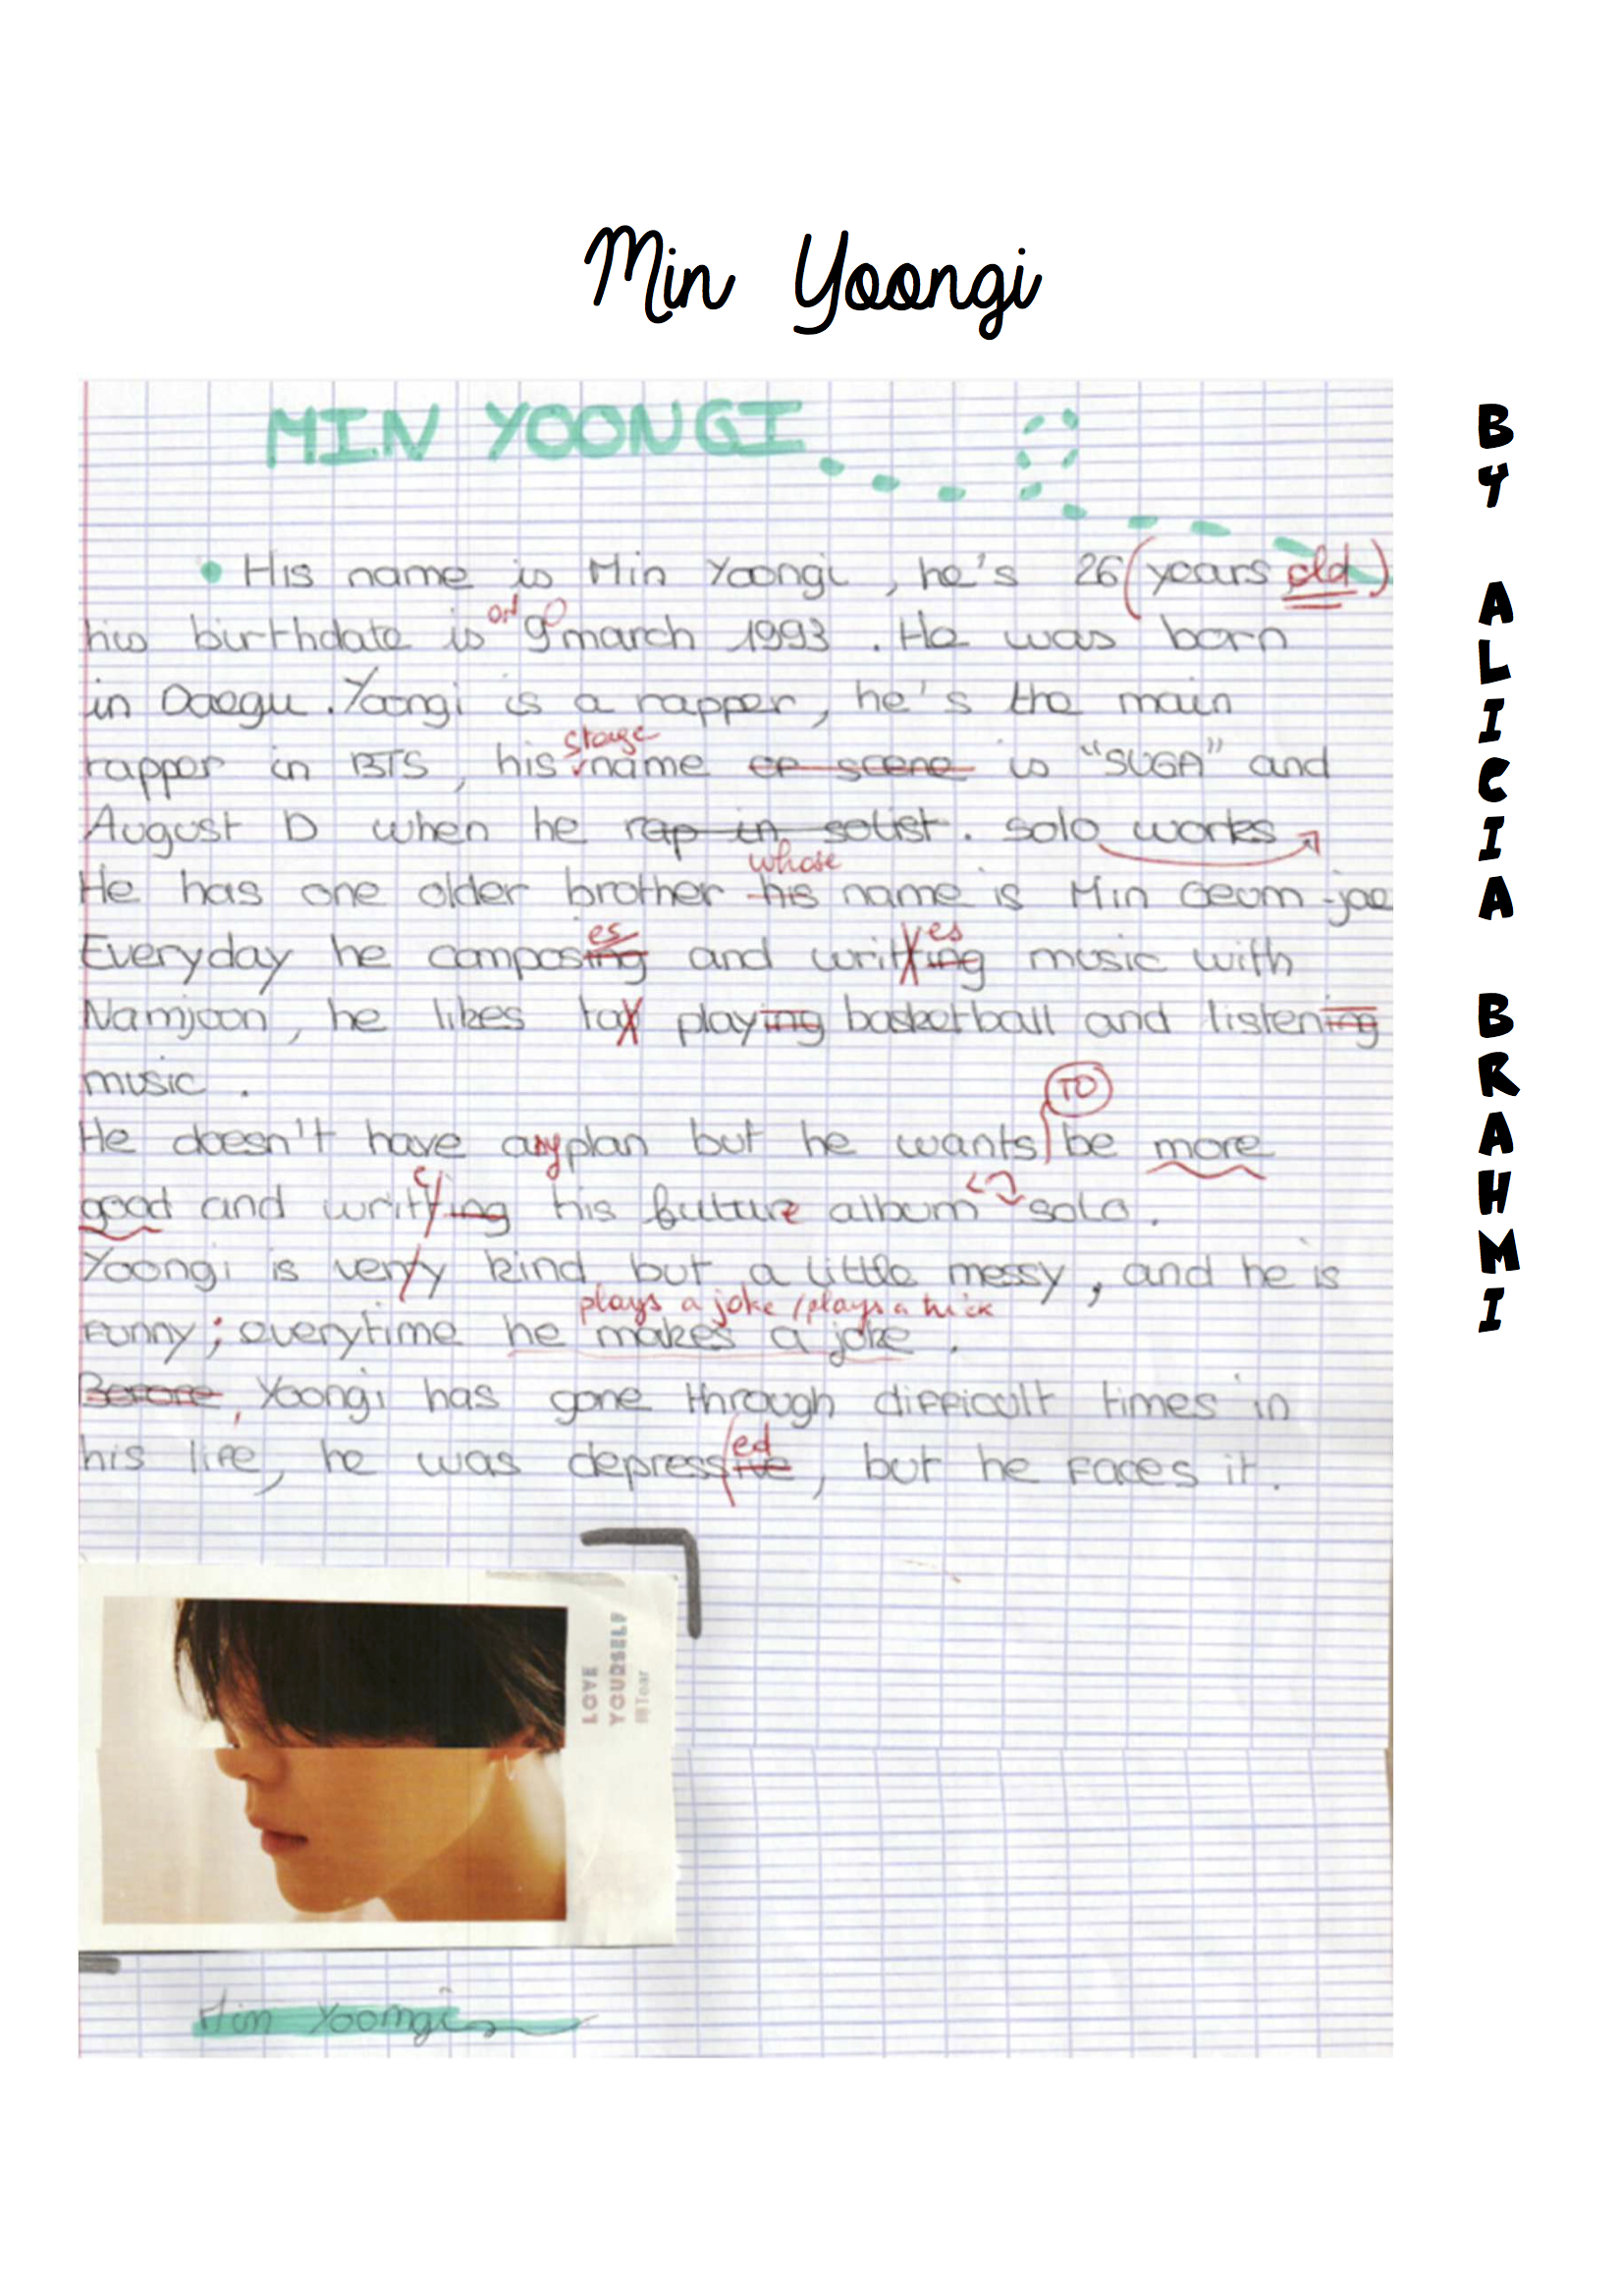 Min Yoongi
BY ALICIA BRAHMI
MIN YOONGI
His name is Min Yoongi, he's 26 (years old)
on
his birthdate is 9 march 1993. He was born
in Daegu. Yoongi is a rapper, he's the main
stage
rapper in BTS, his name of scene is "SUGA" and
August D when he rap in solist. solo works
whose
He has one older brother his name is Min Geum-jae
es es
Everyday he composing and writting music with
Namjoon, he likes to playing basketball and listening
music.
TO
He doesn't have any plan but he wants be more
good and writting his future album solo.
Yoongi is verry kind but a little messy, and he is
plays a joke / plays a trick
Funny; everytime he makes a joke.
Before, Yoongi has gone through difficult times in
ed
his life, he was depressive, but he faces it.
LOVE
YOURSELF
轉Tear
Min Yoongi